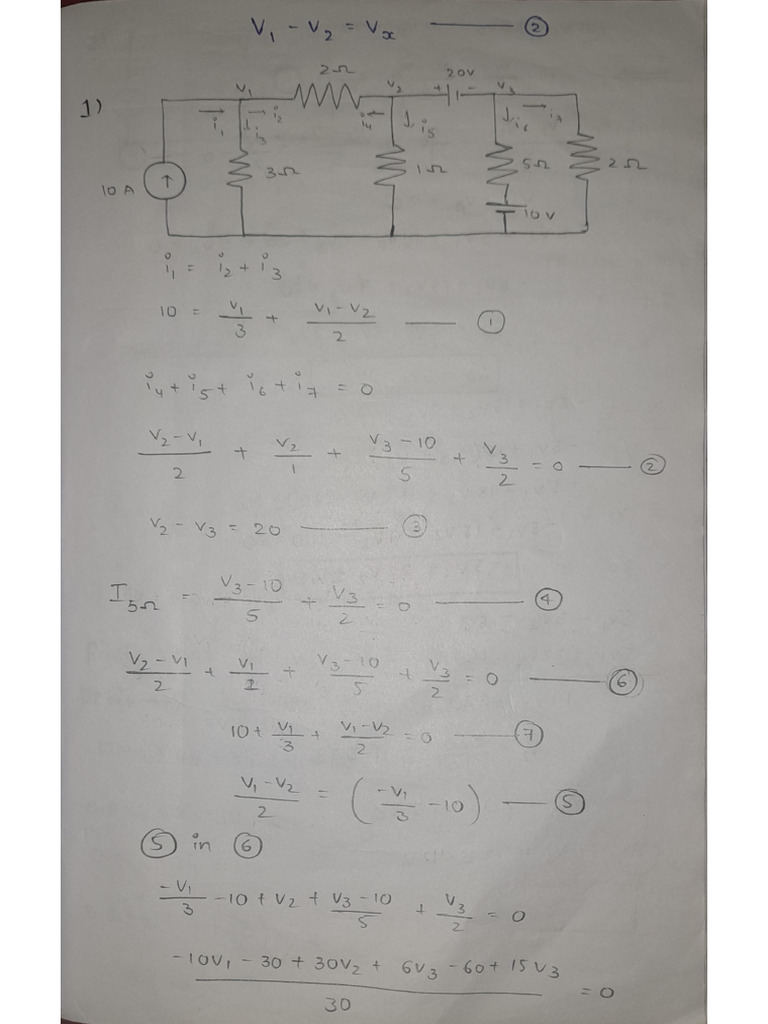 V₁ − V₂ = Vₓ —— ②
1)
2Ω 20V
V₁ V₂ + - V₃
i₁ i₂ i₃ i₄ i₅ i₆ i₇
10 A 3Ω 1Ω 5Ω 2Ω
10 V
i₁ = i₂ + i₃
10 = V₁/3 + (V₁ − V₂)/2 —— ①
i₄ + i₅ + i₆ + i₇ = 0
(V₂ − V₁)/2 + V₂/1 + (V₃ − 10)/5 + V₃/2 = 0 —— ②
V₂ − V₃ = 20 —— ③
I₅Ω = (V₃ − 10)/5 + V₃/2 = 0 —— ④
(V₂ − V₁)/2 + V₁/1 + (V₃ − 10)/5 + V₃/2 = 0 —— ⑥
10 + V₁/3 + (V₁ − V₂)/2 = 0 —— ⑦
(V₁ − V₂)/2 = (−V₁/3 − 10) —— ⑤
⑤ in ⑥
−V₁/3 − 10 + V₂ + (V₃ − 10)/5 + V₃/2 = 0
(−10V₁ − 30 + 30V₂ + 6V₃ − 60 + 15V₃)/30 = 0